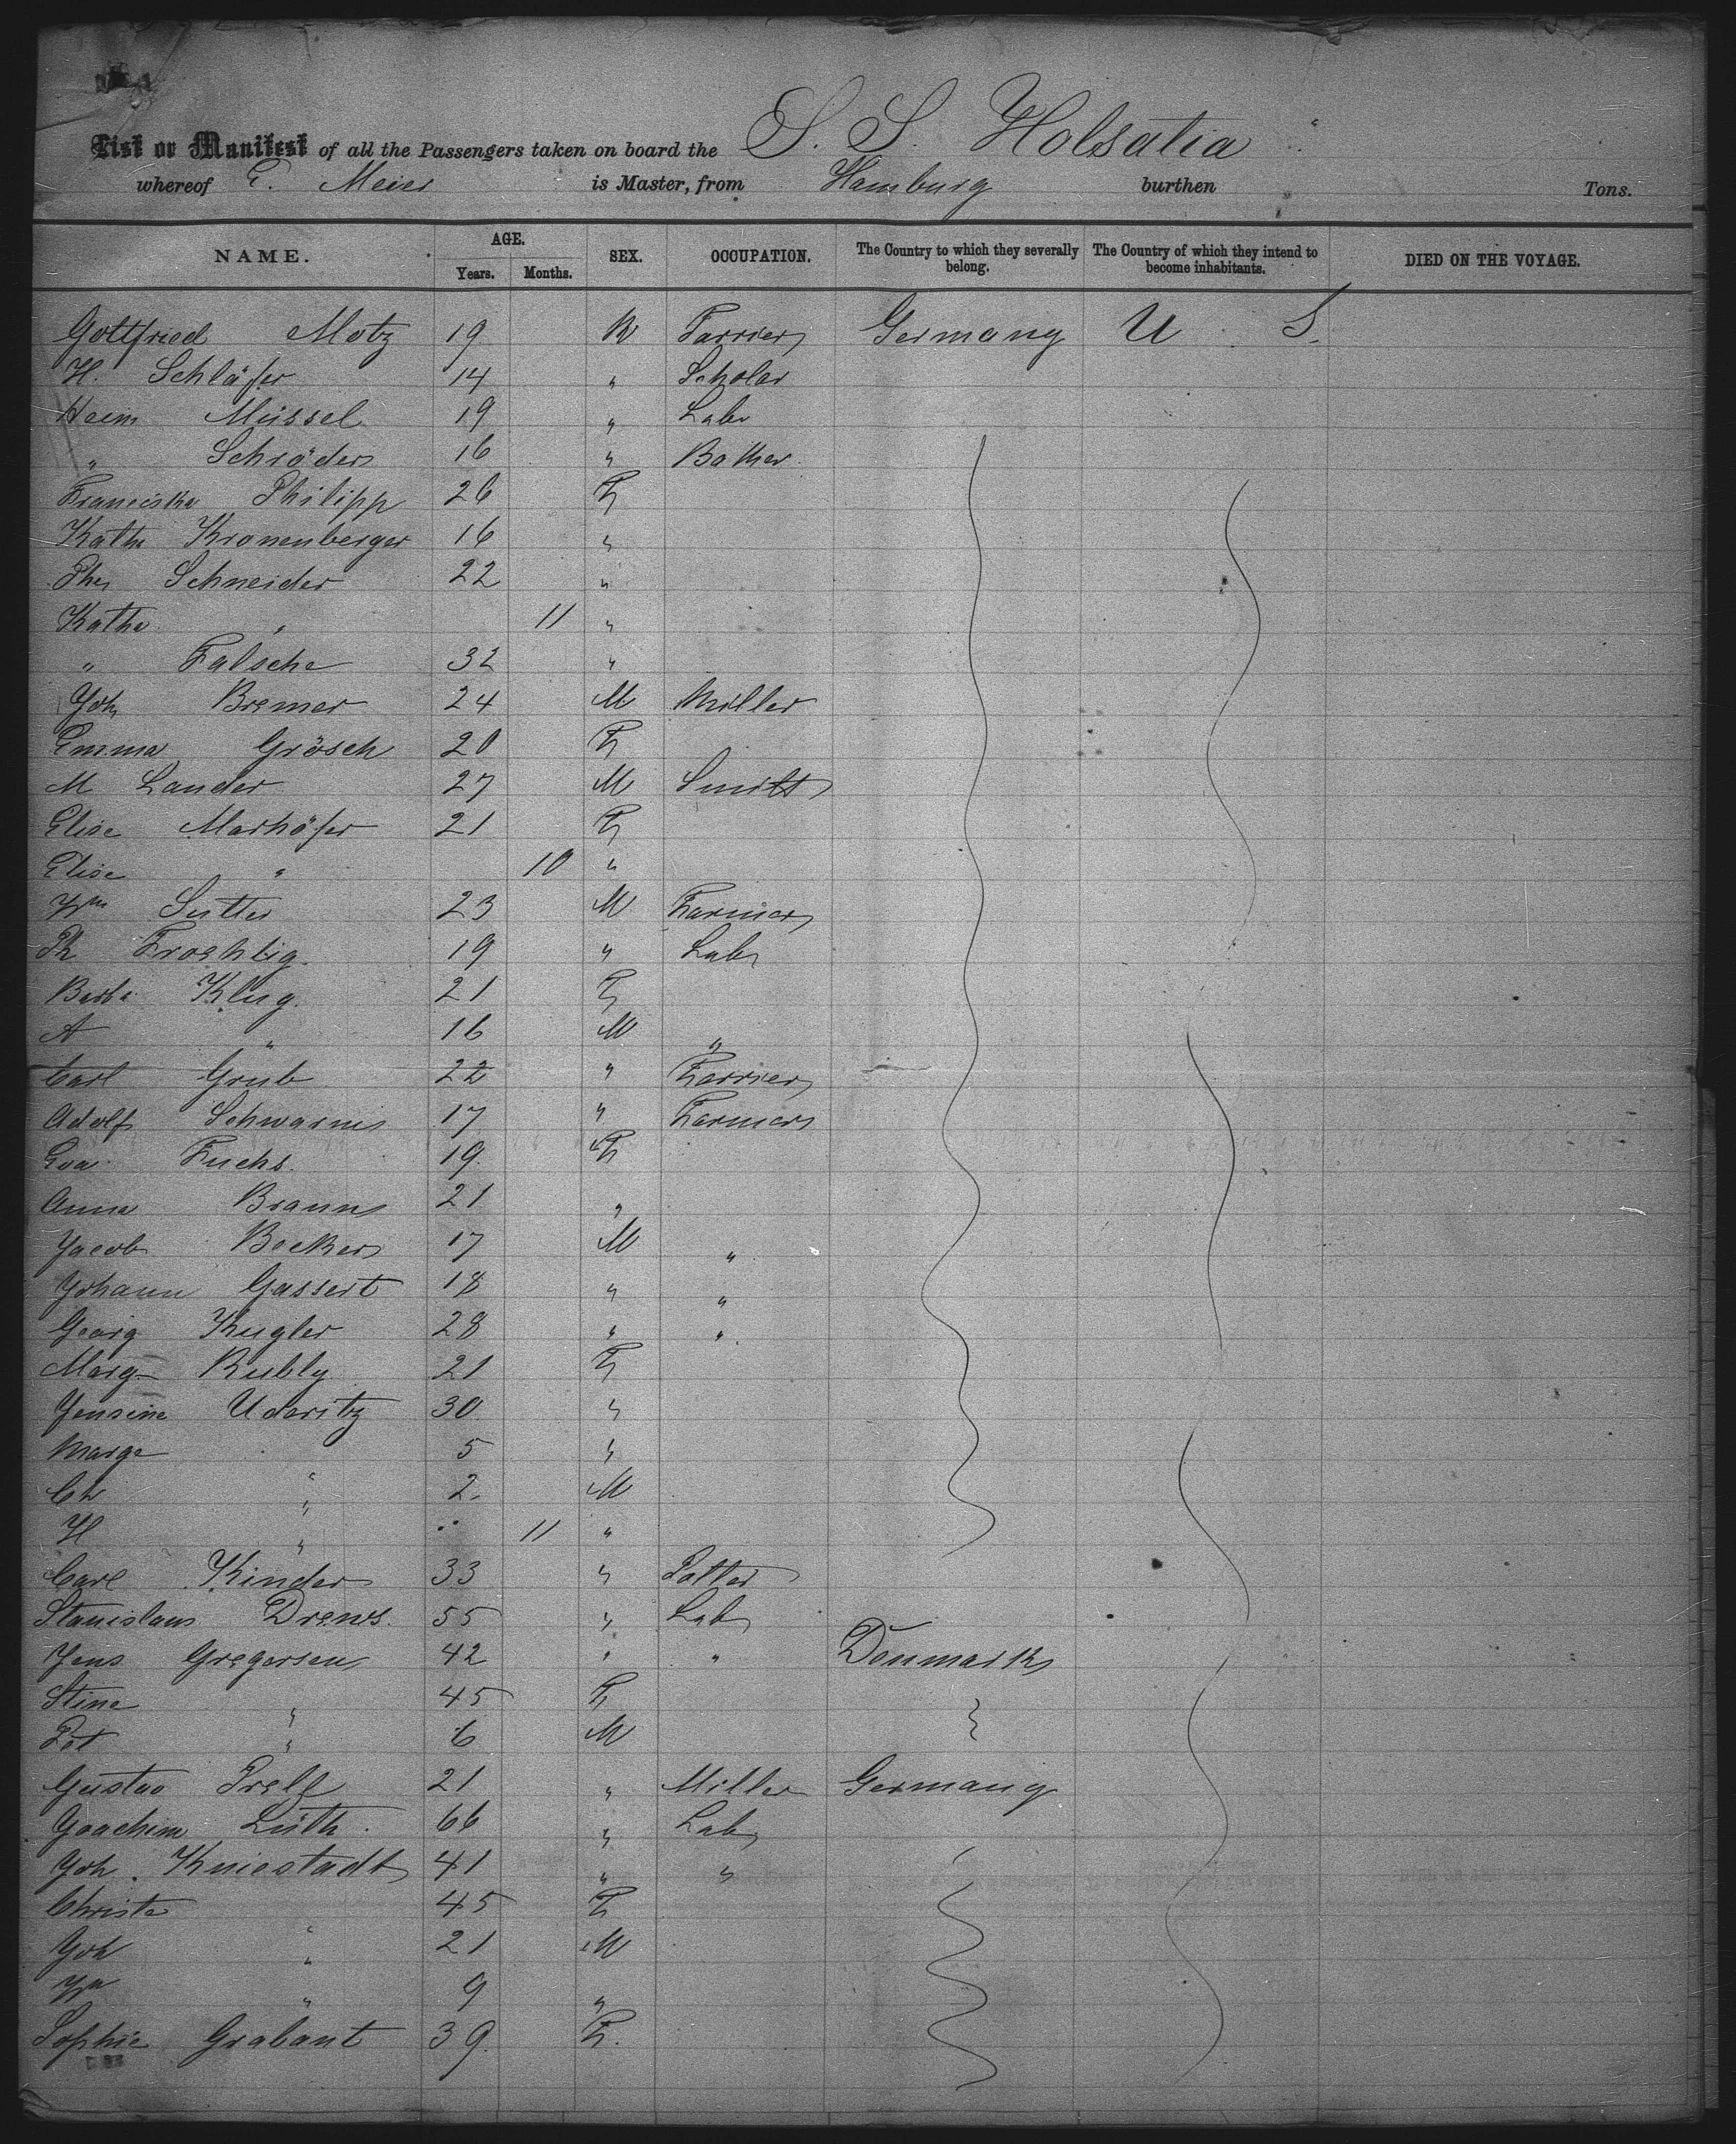 List or Manifest of all the Passengers taken on board the S. S. Holsatia
whereof E. Meier is Master, from Hamburg burthen Tons.
NAME. AGE. Years. Months. SEX. OCCUPATION. The Country to which they severally belong. The Country of which they intend to become inhabitants. DIED ON THE VOYAGE.
Gottfried Motz 19 M Farrier Germany U S.
H. Schläfer 14 " Scholar
Hein Müssel 19 " Labr
" Schröder 16 " Baker
Franciska Philipp 26 F
Katha Kronenberger 16 "
Schneider 22 "
Katha " 11 "
" Falsche 32 "
Joh Bremer 24 M Miller
Emma Grösch 20 F
M Lander 27 M Smith
Elise Marhöfer 21 F
Elise " 10 "
Wm Sutter 23 M Farmer
Ph Froehlig 19 " Lab
Barba Klug 21 F
A " 16 M "
Carl Grub 22 " Farrier
Adolf 17 " Farmer
Eva Fuchs 19 F
Anna Braun 21 "
Jacob Becker 17 M "
Johann Gassert 18 " "
Georg Kugler 28 " "
Marg Rubly 21 F
Jensine Uderitz 30 "
Marga " 5 "
Ch " 2 M
H " 11 "
Carl Kinder 33 " Potter
Stanislaus Drews 55 " Lab
Jens Gregersen 42 " " Denmark
Stine " 45 F
Pet " 6 M
Gustav 21 " Miller Germany
Joachim Lüth 66 " Lab
Joh. Kniestadt 41 " "
Christe " 45 F
Joh " 21 M
Wm " 9 "
Sophie Grabant 39 F.